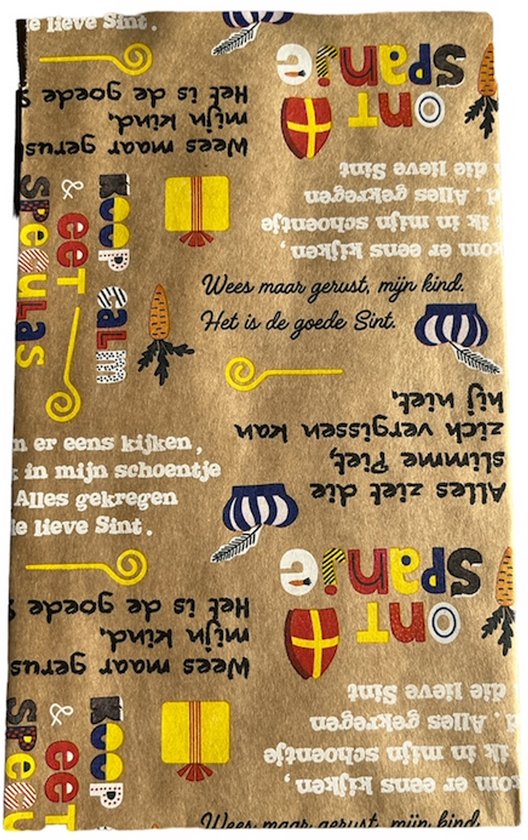 e lieve Sint.
Wees maar gerus
mijn kind.
Het is de goede S
Spanje
om er eens kijken,
ik in mijn schoentje
d. Alles gekregen
die lieve Sint
KOOP
& eet
Wees maar gerust, mijn kind.
Het is de goede Sint.
Alles ziet die
slimme Piet,
zich vergissen kan
hij niet.
n er eens kijken,
k in mijn schoentje
Alles gekregen
ie lieve Sint.
Wees maar gerus
mijn kind.
Het is de goede S
Spanje
om er eens kijken,
ik in mijn schoentje
d. Alles gekregen
die lieve Sint
KOOP
& eet
Wees maar gerust, mijn kind.